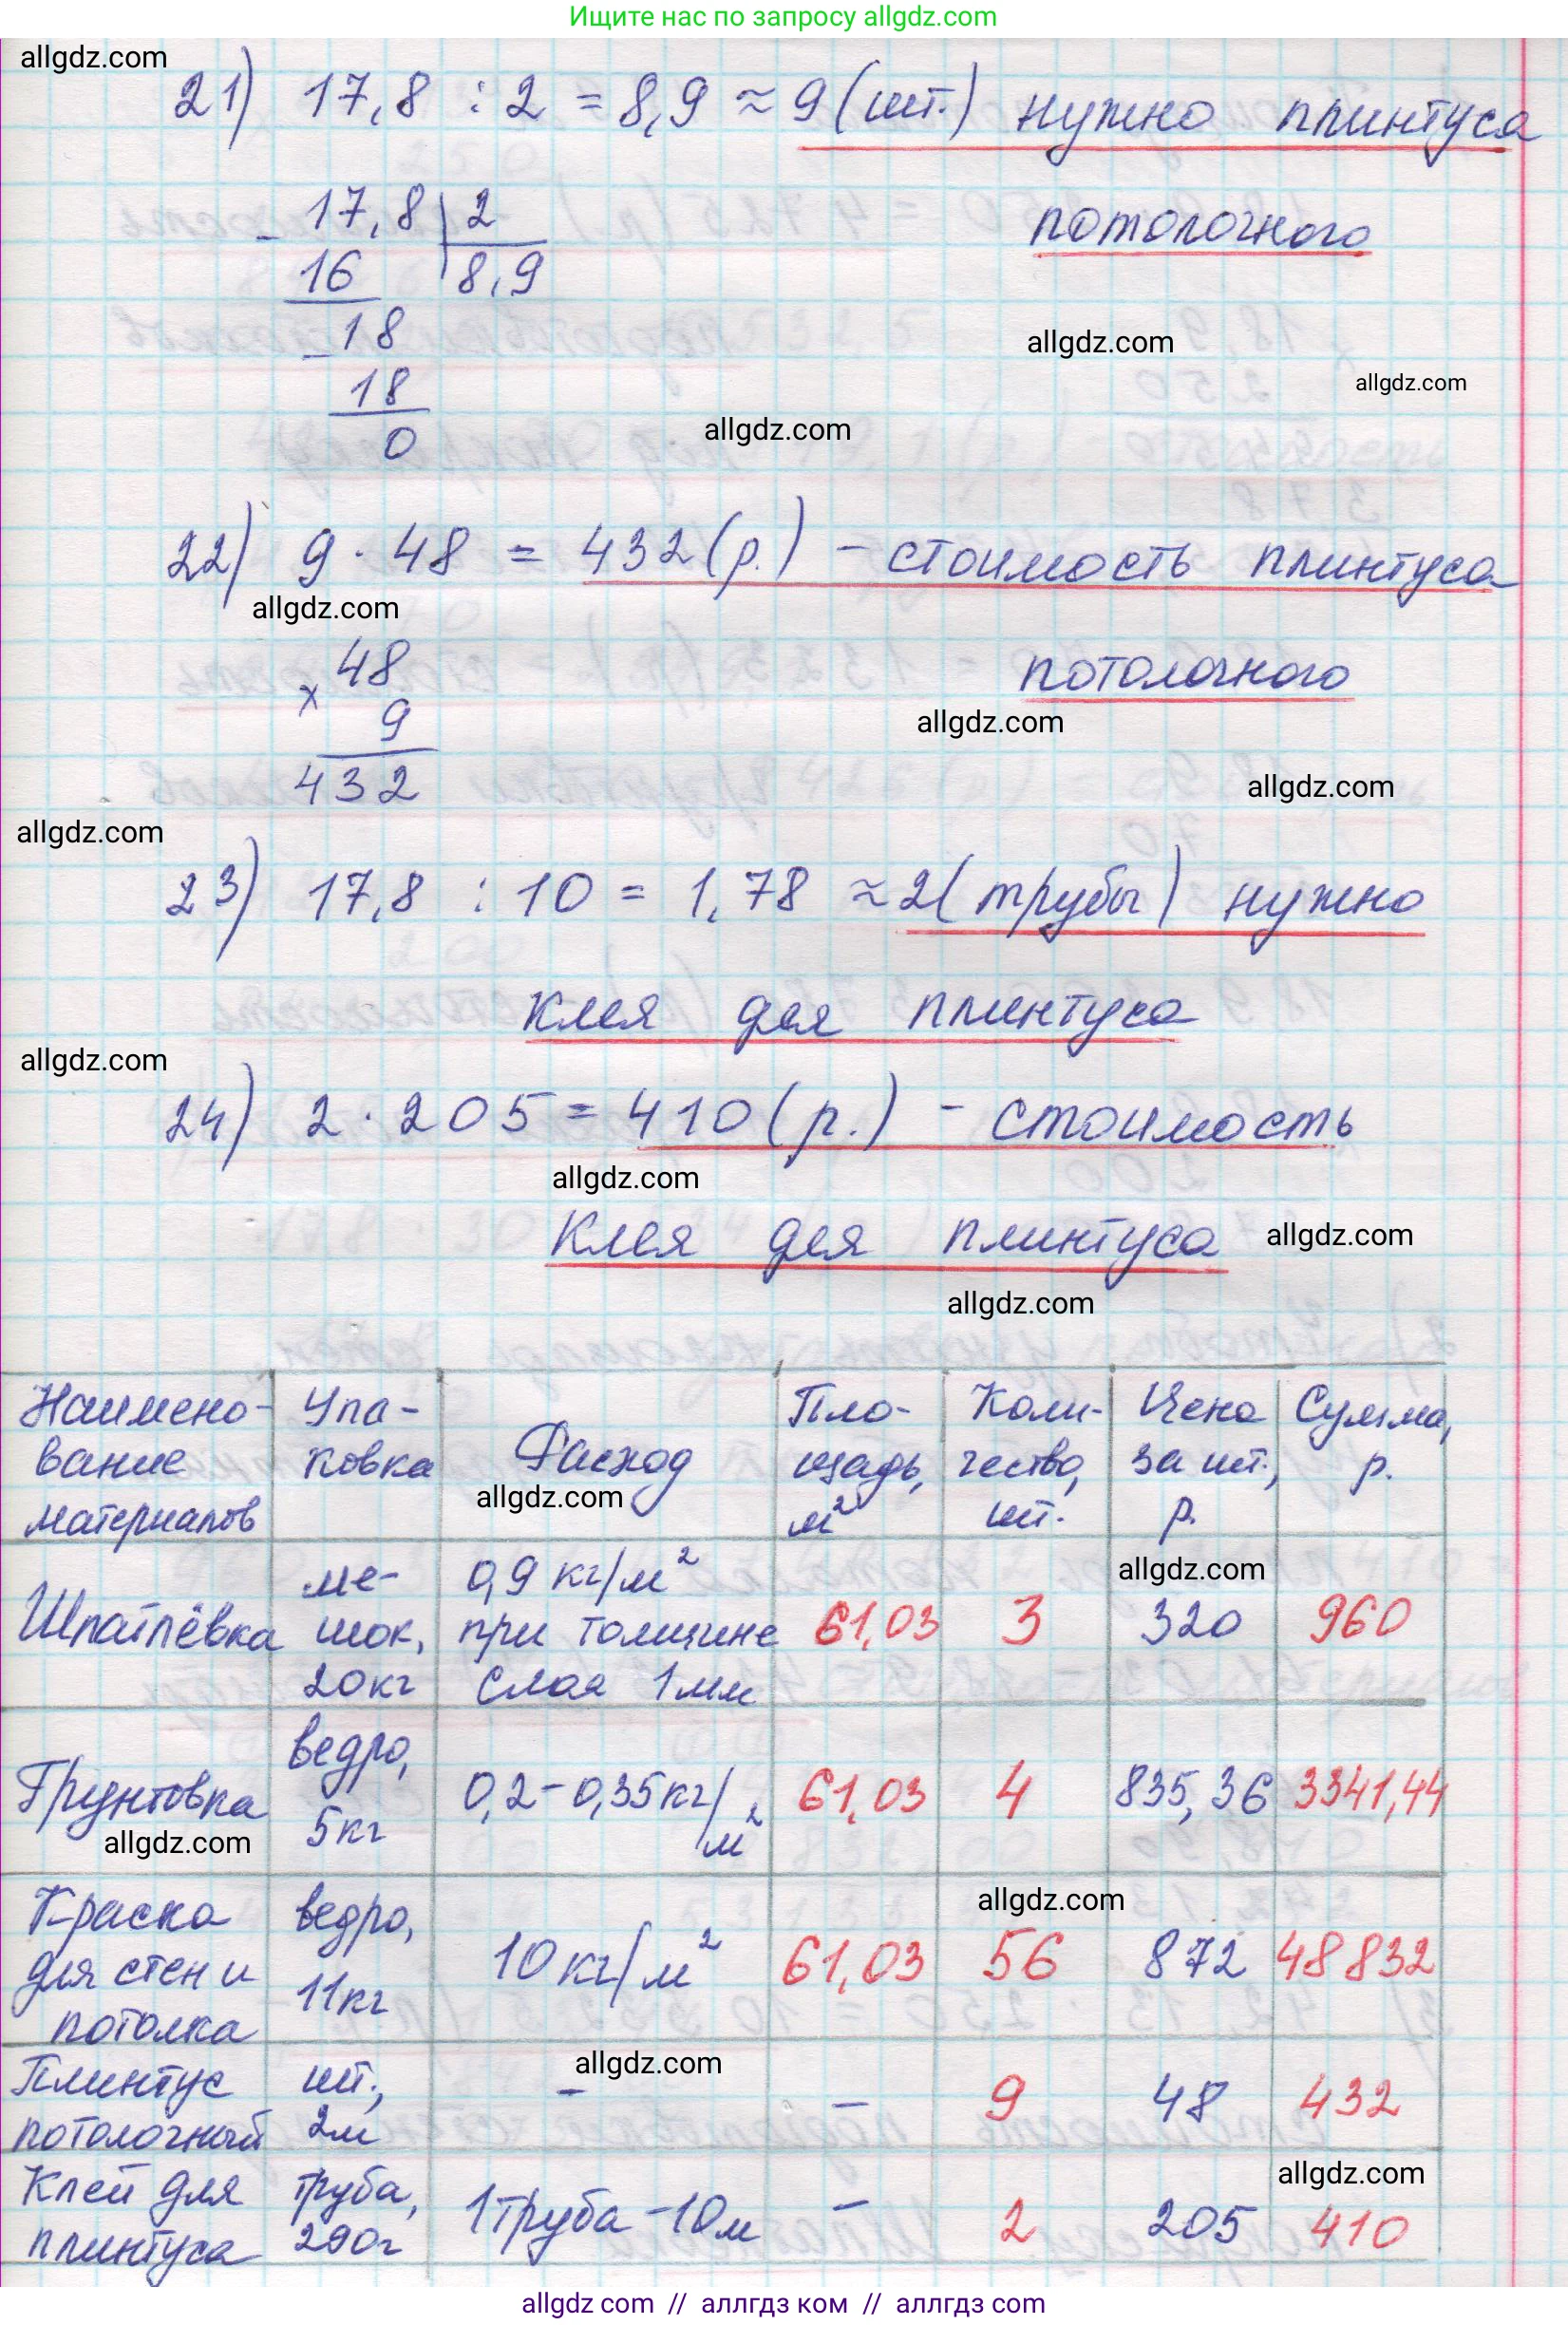 Ищите нас по запросу allgdz.com
allgdz.com
21) 17,8 : 2 = 8,9 ≈ 9 (шт.) нужно плинтуса
потолочного
17,8 | 2
- 16 | 8,9
- 18
18
0
allgdz.com
allgdz.com
allgdz.com
22) 9 · 48 = 432 (р.) - стоимость плинтуса
потолочного
allgdz.com
× 48
9
432
allgdz.com
allgdz.com
allgdz.com
23) 17,8 : 10 = 1,78 ≈ 2 (трубы) нужно
клея для плинтуса
allgdz.com
24) 2 · 205 = 410 (р.) - стоимость
allgdz.com
клея для плинтуса
allgdz.com
allgdz.com
Наимено- Упа- Расход Пло- Коли- Цена Сумма,
вание ковка щадь, чество, за шт., р.
материалов м² шт. р.
allgdz.com
allgdz.com
Шпатлёвка ме- 0,9 кг/м² 61,03 3 320 960
шок, при толщине
20кг слоя 1мм
Грунтовка ведро, 0,2-0,35кг/м² 61,03 4 835,36 3341,44
5кг
allgdz.com
allgdz.com
Краска ведро, 10кг/м² 61,03 56 872 48832
для стен и 11кг
потолка
allgdz.com
Плинтус шт., - - 9 48 432
потолочный 2м
allgdz.com
Клей для труба, 1труба -10м - 2 205 410
плинтуса 290г
allgdz com // аллгдз ком // аллгдз com